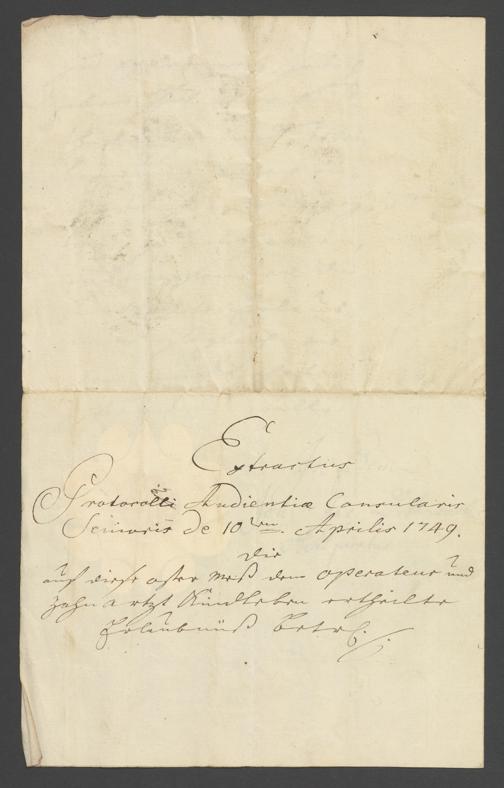 Extractus
Protocolli Audientiæ Consularis
Senioris de 10ten. Aprilis 1749.
Die
auf diese oster Meß dem operateur und
Zahn artzt Kindleben ertheilte
Erlaubnüß betr.